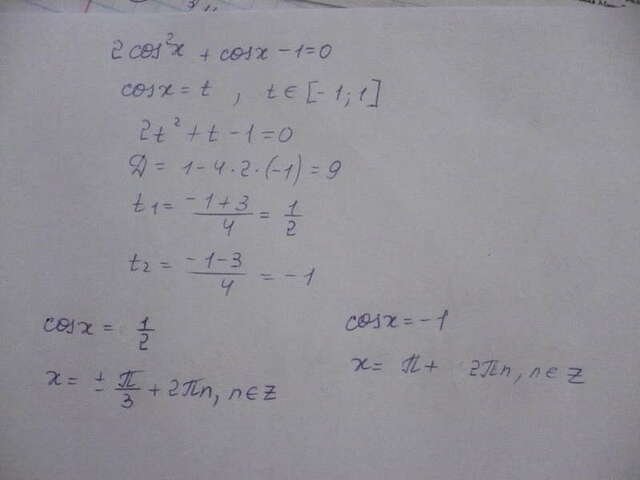 2cos²x + cosx - 1 = 0
cosx = t , t ∈ [-1; 1]
2t² + t - 1 = 0
Д = 1 - 4 · 2 · (-1) = 9
t1 = (-1+3)/4 = 1/2
t2 = (-1-3)/4 = -1
cosx = 1/2
x = ± π/3 + 2πn, n ∈ Z
cosx = -1
x = π + 2πn, n ∈ Z